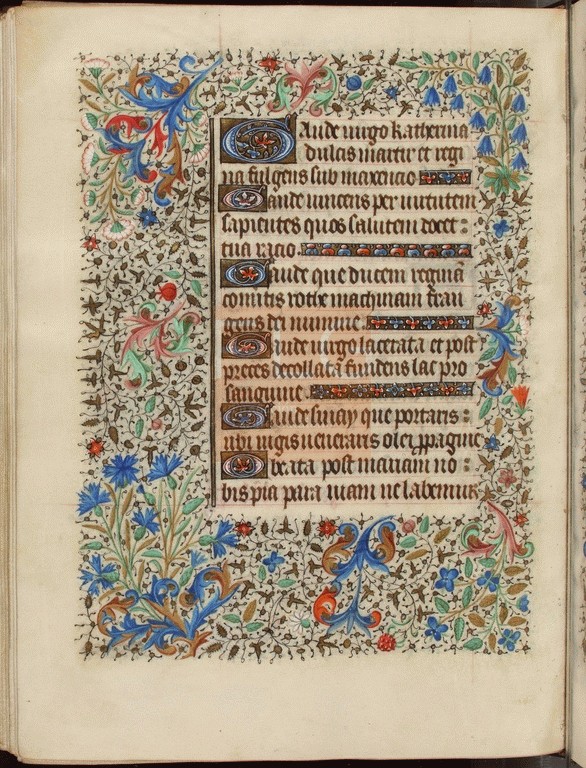 Gaude uirgo katherina
dulcis martir et regi
na fulgens sub maxencio
Gaude uincens per uirtutem
sapientes quos salutem docet
tua racio
Gaude que ducem regina
comitis rothe machinam fran
gens dei numine
Gaude uirgo lacerata et post
preces decollata fundens lac pro
sanguine
Gaude sinay que portaris
ubi iugis ueneraris olei
beata post mariam no
bis pia para uiam ne labemur